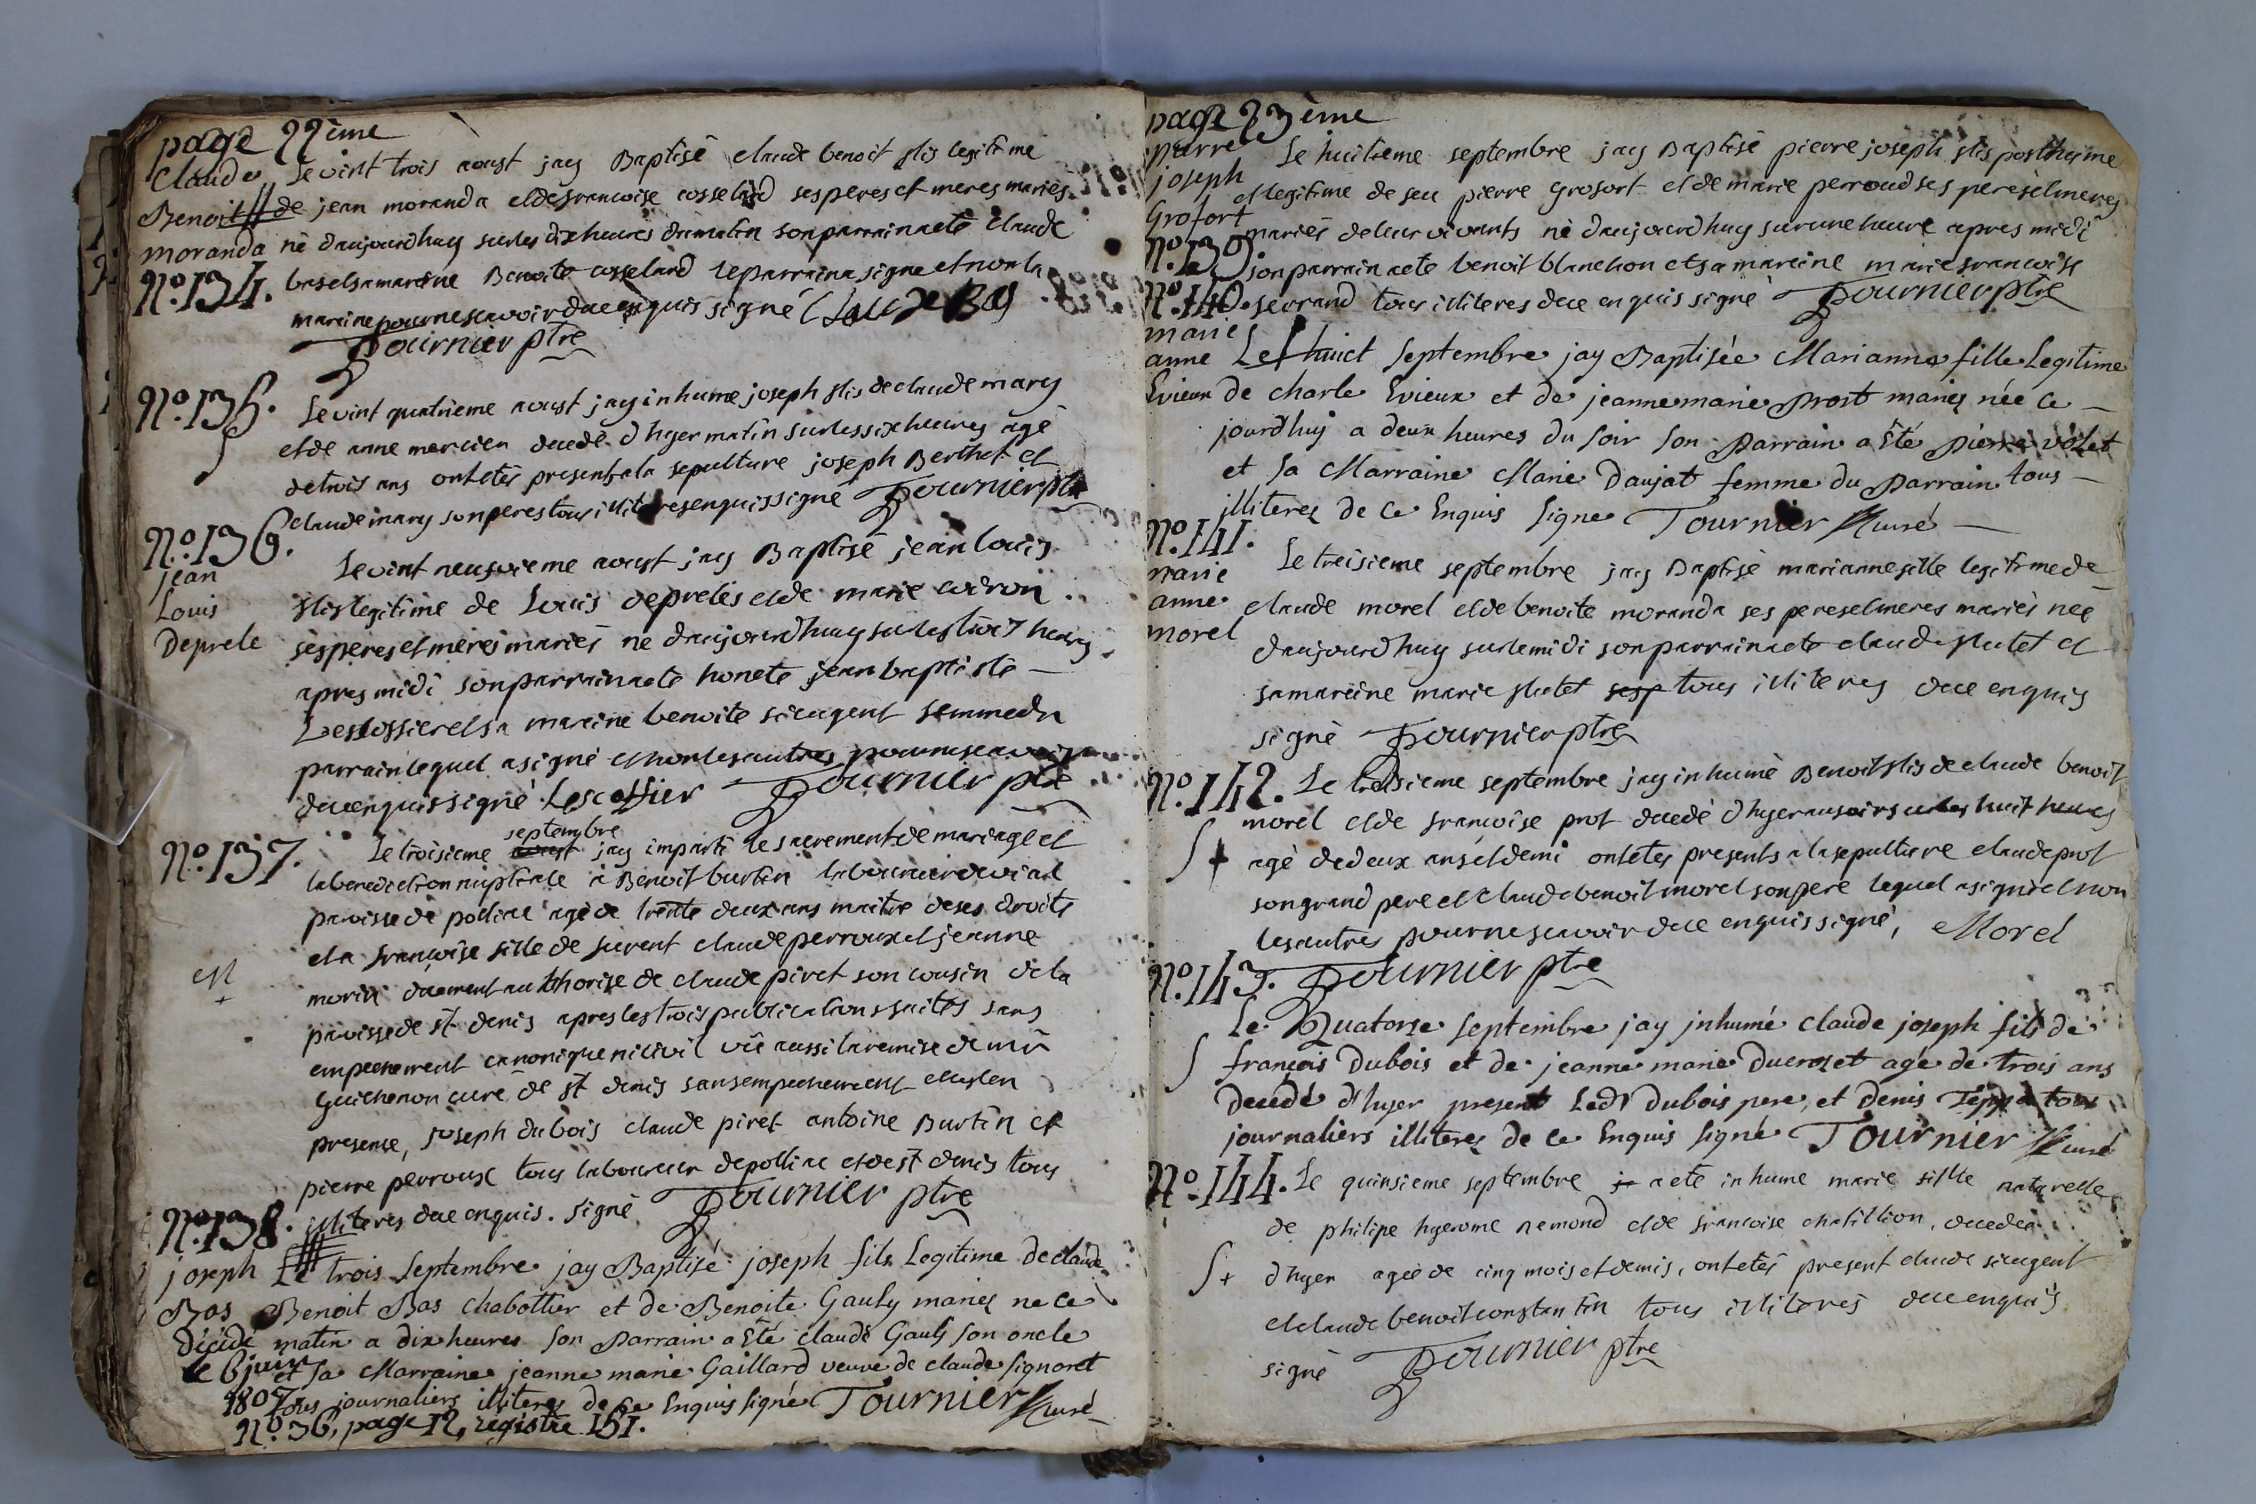 page 22ème
Claude Le vint trois aoust jay Baptisé claude benoit fils legitime
Benoit de jean moranda et de francoise cosseland ses peres et meres mariés
moranda né daujourdhuy sur les dix heures du matin son parrain a eté claude
No. 134. bas et sa mareine Benoite cosseland le parrain a signe et non la
mareine pour ne scavoir de ce enquis signé Claude BAS
Tournier ptre
No. 135. Le vint quatrieme aoust jay inhume joseph fils de claude mary
et de anne mercier decedé dhyer matin sur les six heures agé
de trois ans ont etés present a la sepulture joseph Berthet et
claude mary son peres tous illiteres enquis signé Tournier ptre
No. 136.
jean Le vint neufvieme aoust jay Baptisé jean louis
Louis fils legitime de Louis deprelés et de marie
Deprele ses peres et meres mariés né daujourdhuy sur les trois heures
apres midi son parrain a eté honete jean baptiste
Lescossier et sa mareine benoite sieugent femme du
parrain lequel a signé et non les autres pour ne scavoir
de ce enquis signé Lescossier Tournier ptre
septembre
No. 137. Le troisieme aoust jay imparti le sacrement de mariage et
la benediction nuptiale a Benoit burtin laboureur de viad
paroisse de poliac agé de trente deux ans maitre de ses droits
et a francoise fille de furent claude perroux et jeanne
morin duement authorise de claude piret son cousin de la
paroisse de st denis apres les trois publications faites sans
empechement canonique ni civil vûe aussi la remise de mr
Guichenon curé de st denis sans empechement et en
presence, joseph dubois claude piret antoine Burtin et
pierre perroux tous laboureur de polliac et de st denis tous
illiteres de ce enquis. signé Tournier ptre
No. 138.
joseph Le trois Septembre jay Baptisé joseph fils Legitime de claude
Bas Benoit Bas chabottier et de Benoite Gauly mariez né ce
décédé matin a dix heures son Parrain a Eté claude Gauly son oncle
le 6 juin et sa Marraine jeanne marie Gaillard veuve de claude Signoret
1807 tous journaliers illiterez de ce Enquis signé Tournier Curé
No. 36, page 12, registre 151.
page 23ème
pierre Le huitieme septembre jay Baptisé pierre joseph fils posthume
joseph et legitime de feu pierre grosfort et de marie perroud ses peres et meres
Grofort mariés de leur vivants né daujourdhuy sur une heure apres midi
No. 139. son parrain a ete benoit blanchon et sa mareine marie francoise
No. 140. ferrand tous illiteres de ce enquis signé Tournier ptre
marie
anne Le huict Septembre jay Baptisée Marianne fille Legitime
Evieux de charle Evieux et de jeanne marie Prost mariez née ce
jourdhuy a deux heures du soir son Parrain a Eté Pierre volet
et sa Marraine Marie Daujat femme du Parrain tous
illiterez de ce Enquis signe Tournier Curé
No. 141.
marie Le treisieme septembre jay Baptisé marianne fille legitime de
anne claude morel et de benoite moranda ses peres et meres mariés née
morel daujourdhuy sur le midi son parrain a eté claude flutet et
sa mareine marie flutet tous illiteres de ce enquis
signé Tournier ptre
No. 142. Le treisieme septembre jay inhumé Benoit fils de claude benoit
morel et de francoise prot decedé dhyer au soir sur les huit heures
agé de deux ans et demi ont etés presents a la sepulture claude prot
son grand pere et claude benoit morel son pere lequel a signé et non
les autres pour ne scavoir de ce enquis signé, Morel
No. 143. Tournier ptre
Le Quatorze Septembre jay inhumé claude joseph fils de
françois Dubois et de jeanne marie Ducrozet agé de trois ans
decédé d'hyer present Ledt Dubois pere, et denis tous
journaliers illiterez de ce Enquis signé Tournier Curé
No. 144. Le quinsieme septembre a eté inhume marie fille naturelle
de philipe hyerome remond et de francoise chatillion, decedée
dhyer agée de cinq mois et demis, ont etés present claude sieugent
et claude benoit constantin tous illiterés de ce enquis
signé Tournier ptre